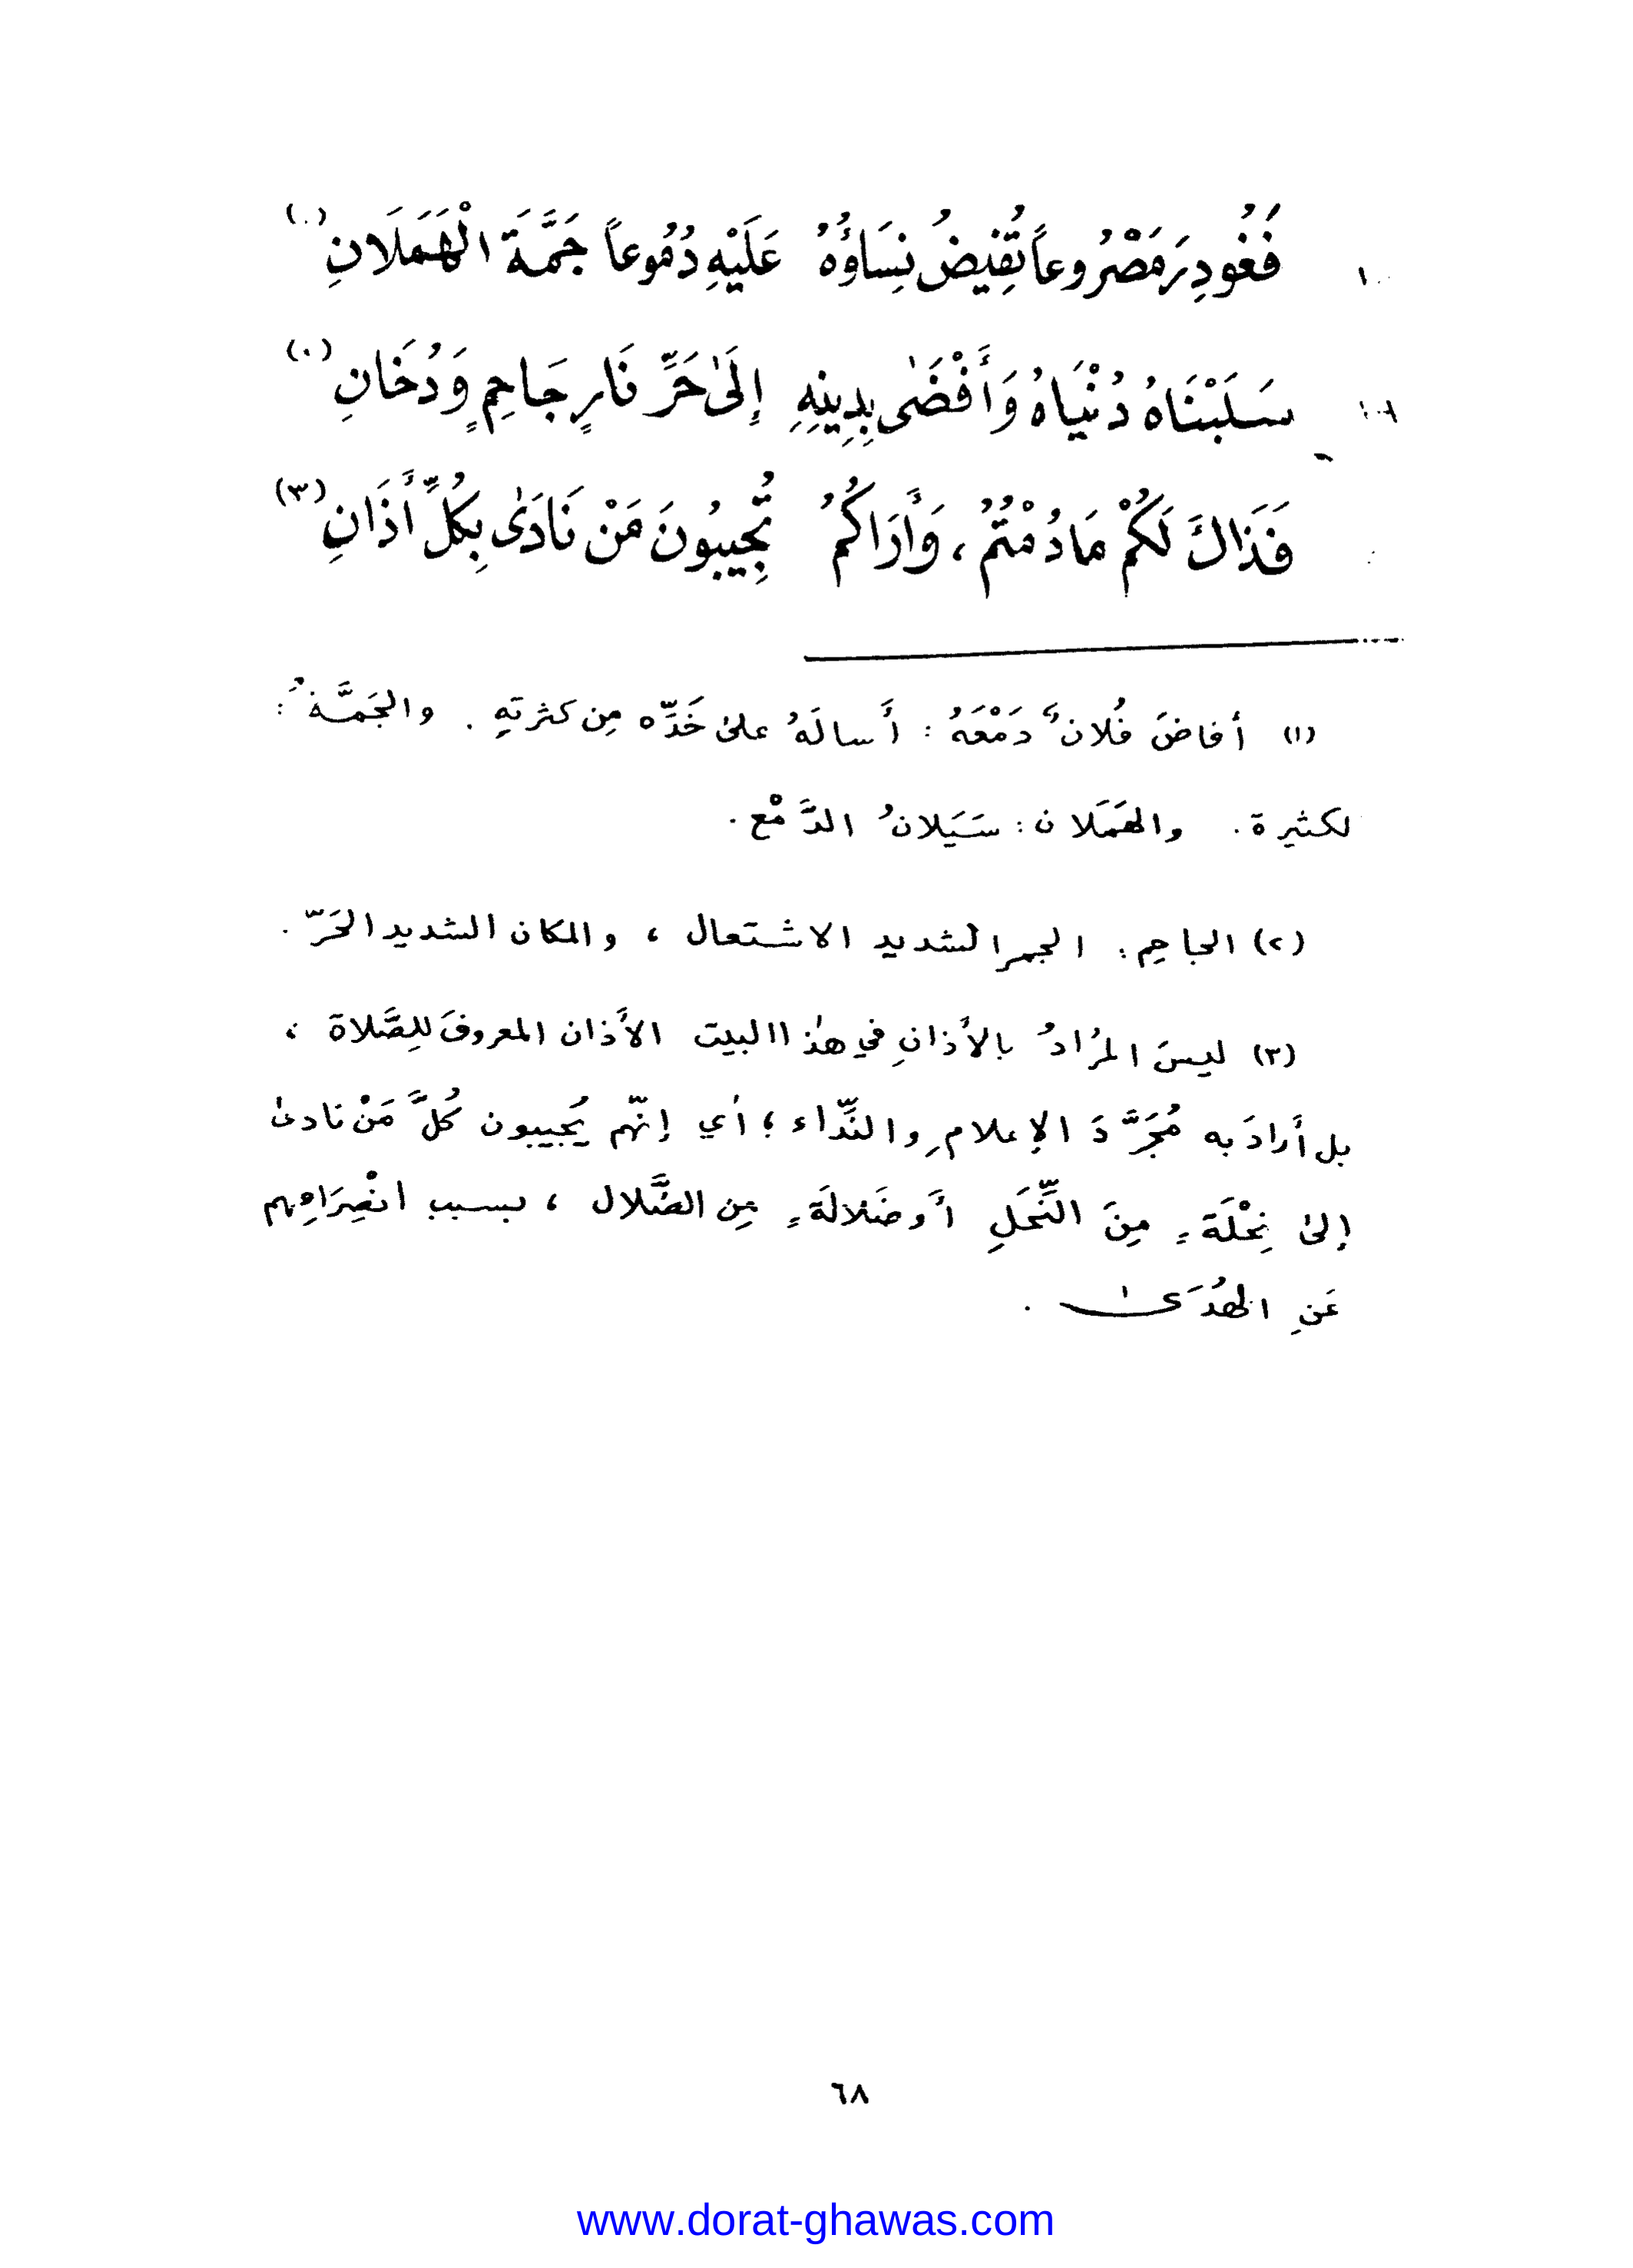 فَغُودِرَ مَصْرُوعاً تُفِيضُ نِسَاؤُهُ عَلَيْهِ دُمُوعاً جَمَّةَ الْهَمَلَانِ
سَلَبْنَاهُ دُنْيَاهُ وَأَفْضَى بِدِينِهِ إِلَىٰ حَرِّ نَارٍ جَاحِمٍ وَدُخَانِ
فَذَاكَ لَكُمْ مَا دُمْتُمُ ، وَأَرَاكُمُ تُجِيبُونَ مَنْ نَادَىٰ بِكُلِّ أَذَانِ (٣)
(١) أفاضَ فُلانٌ دَمْعَهُ : أَسالَهُ علىٰ خَدِّه مِن كثرتهِ . والجَمَّةُ :
لكثيرة . والهَمَلان : سَيَلانُ الدَّمْع .
(٢) الجاحِم : الجمر الشديد الاشتعال ، والمكان الشديد الحَرّ .
(٣) ليسَ المُرادُ بالأَذانِ في هٰذا البيت الأَذان المعروفَ للِصَّلاة ،
بل أَرادَ به مُجَرَّدَ الإعلامِ والنِّداء ؛ أي إنّهم يُجيبون كُلَّ مَنْ نادىٰ
إلىٰ نِحْلَةٍ مِنَ النِّحَلِ أَو ضَلالَةٍ مِن الضَّلال ، بسبب انْصِرَافِهم
عَنِ الهُدَىٰ .
٦٨
www.dorat-ghawas.com